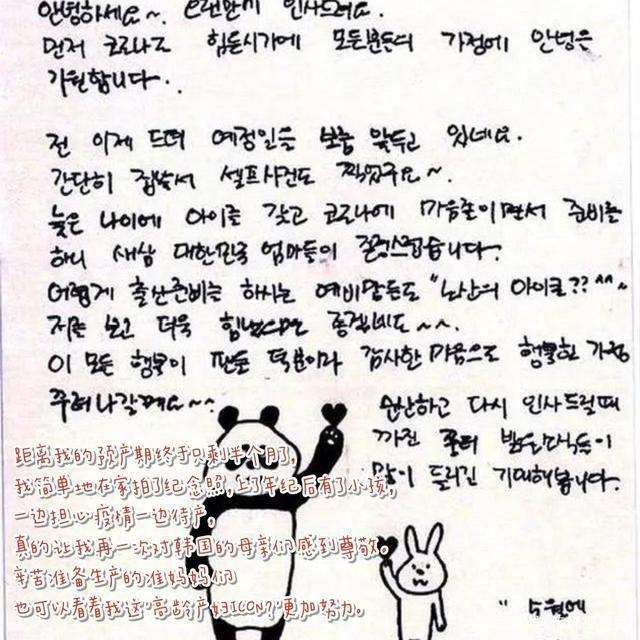 안녕하세요~. 오랜만에 인사드려요.
먼저 코로나로 힘든시기에 모든분들의 가정에 안녕을
기원합니다..
전 이제 드뎌 예정일을 보름 앞두고 있네요.
간단히 집에서 셀프사진도 찍었구요~.
늦은 나이에 아이를 갖고 코로나에 마음졸이면서 준비를
하니 새삼 대한민국 엄마들이 존경스럽습니다.
어렵게 출산준비를 하시는 예비맘들도 "노산의 아이콘?? ^^~
저를 보고 더욱 힘내시면 좋겠네요~~.
이 모든 행복이 팬들 덕분이라 감사한 마음으로 행복한 가정
꾸려나갈께요~~
순산하고 다시 인사드릴때
까진
많이 들리길 기대해봅니다.
距离我的预产期终于只剩半个月了,
我简单地在家拍了纪念照,上了年纪后有了小孩,
一边担心疫情一边待产,
真的让我再一次对韩国的母亲们感到尊敬。
辛苦准备生产的准妈妈们
也可以看着我这"高龄产妇ICON?"更加努力。
" 5월에